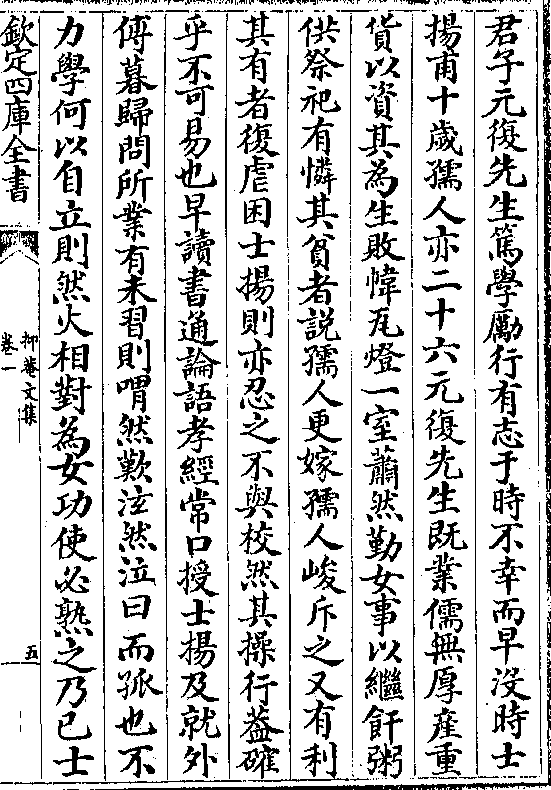 君子元復先生篤學勵行有志于時不幸而早沒時士
揚甫十歲孺人亦二十六元復先生既業儒無厚産重
貨以資其為生敗幃瓦燈一室蕭然勤女事以繼飦粥
供祭祀有憐其貧者説孺人更嫁孺人峻斥之又有利
其有者復虐困士揚則亦忍之不與校然其操行益確
乎不可易也早讀書通論語孝經常口授士揚及就外
傅暮歸問所業有未習則喟然歎泫然泣曰而孤也不
力學何以自立則然火相對為女功使必熟之乃已士
欽定四庫全書
抑菴文集
卷一
五